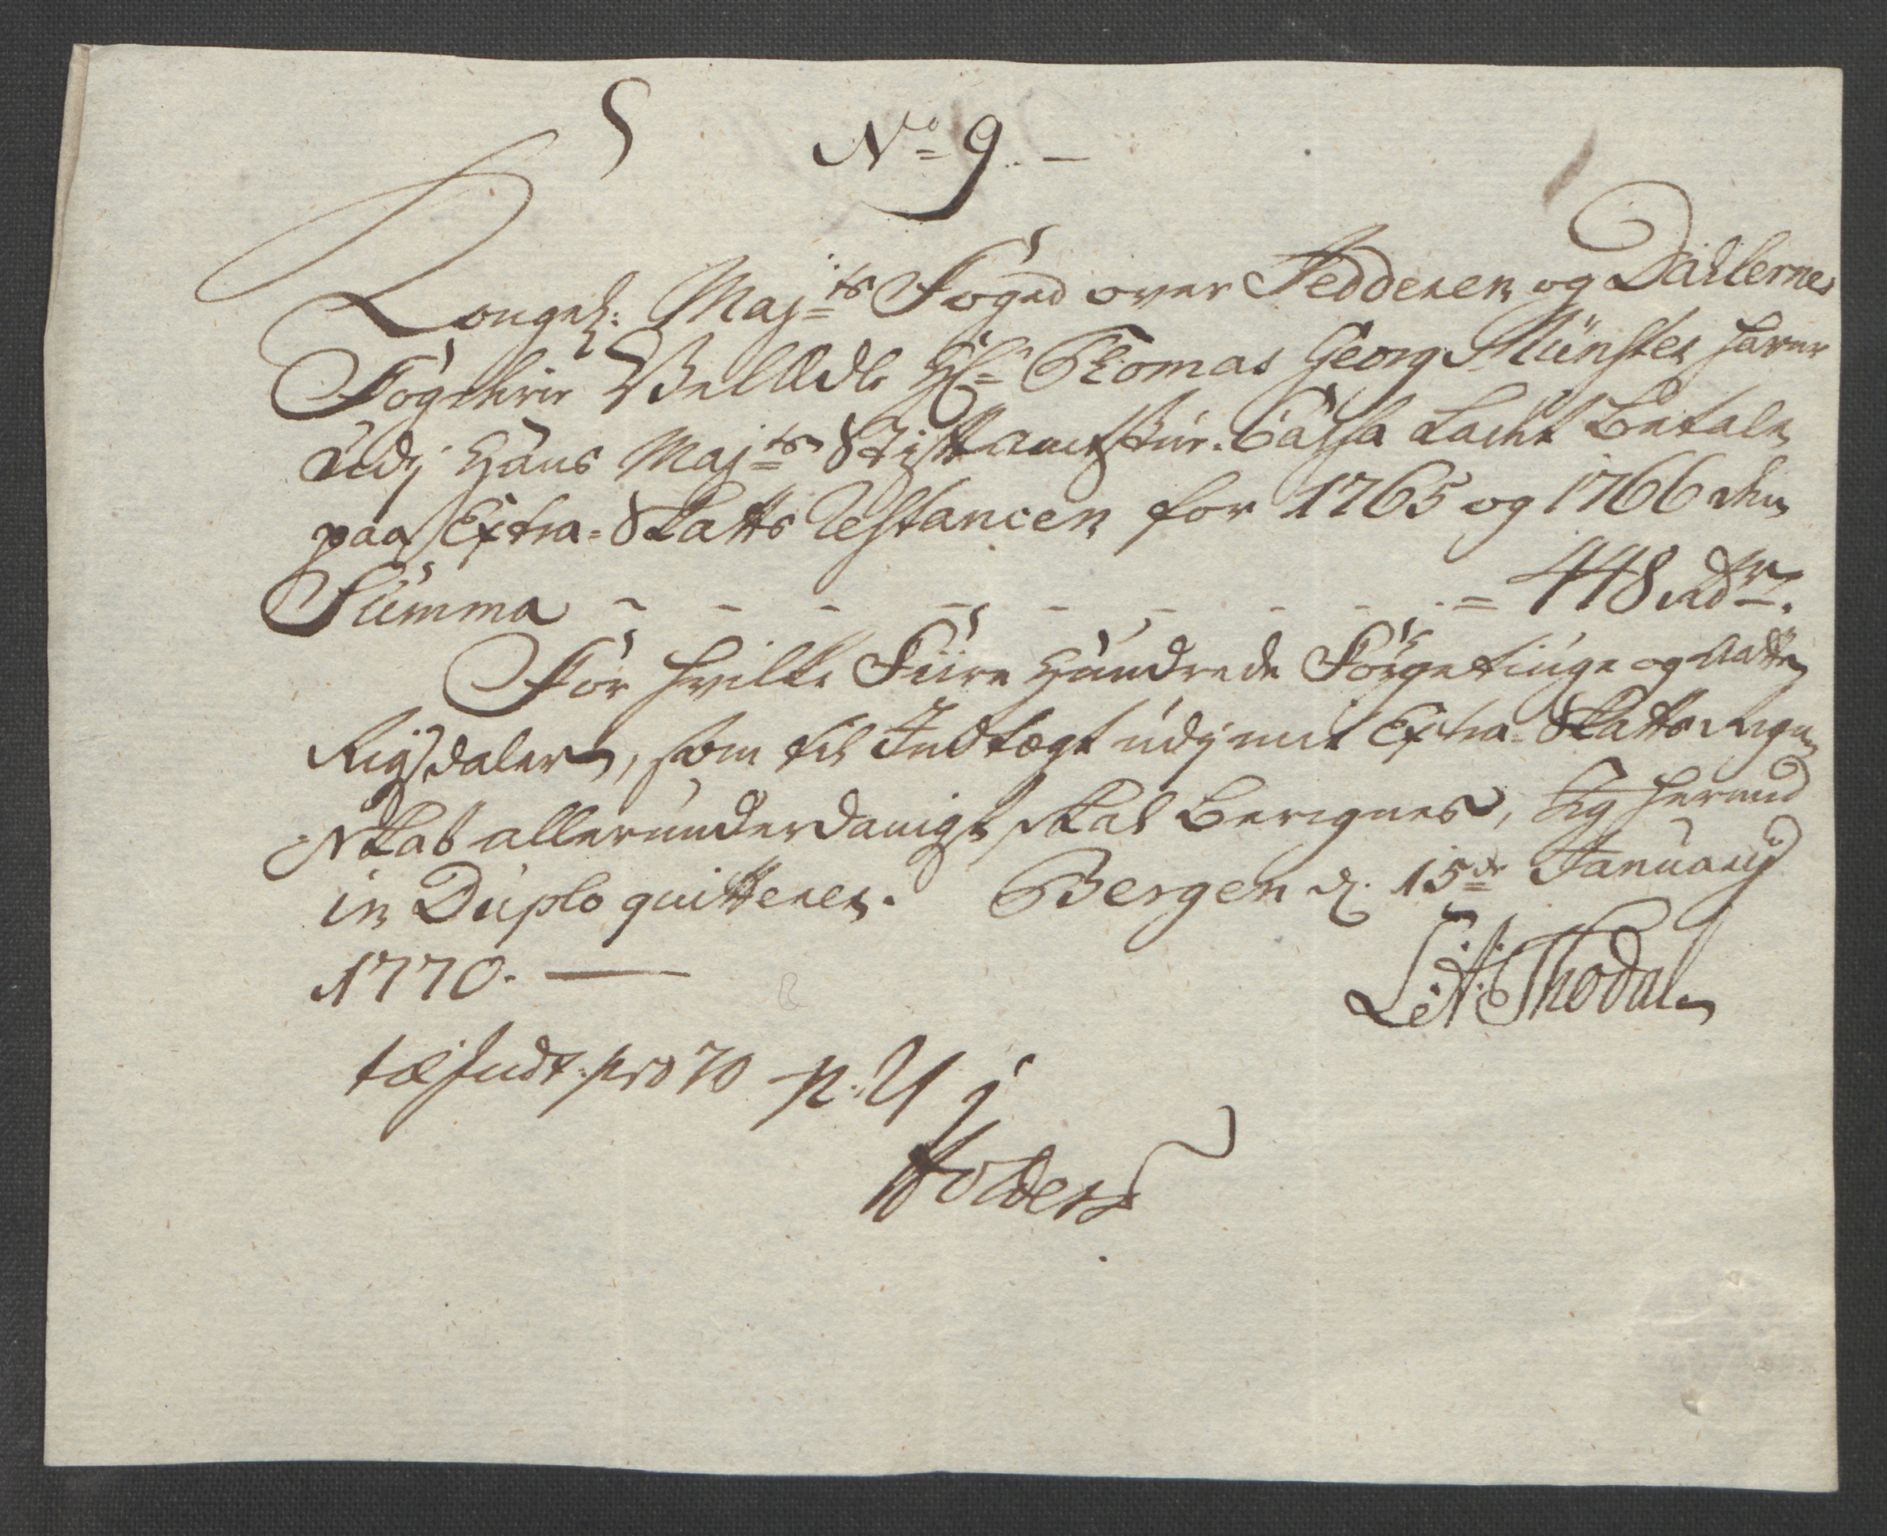 No 9. —
Kongel: Majts Foged over Jedderen og Dahlernes
Fogderie Velædle Hr Thomas Georg Münster haver
udj Hans Majts Stift Cassa ladet Betale
paa Extra-Skatts Restancen for 1765 og 1766 den
Summa - - - - - - - - - = 448 Rdr.
For hvilke Fiire Hundrede Förgetiuge og Aatte
Rigsdaler, som til Indtægt udj mit Extra-Skatts Regn-
skab allerunderdanigst skal Beregnes, Jeg herved
in Duplo quitterer. Bergen d. 15de Januarij
1770. —
L: A: Thodal
pro 70
Holders